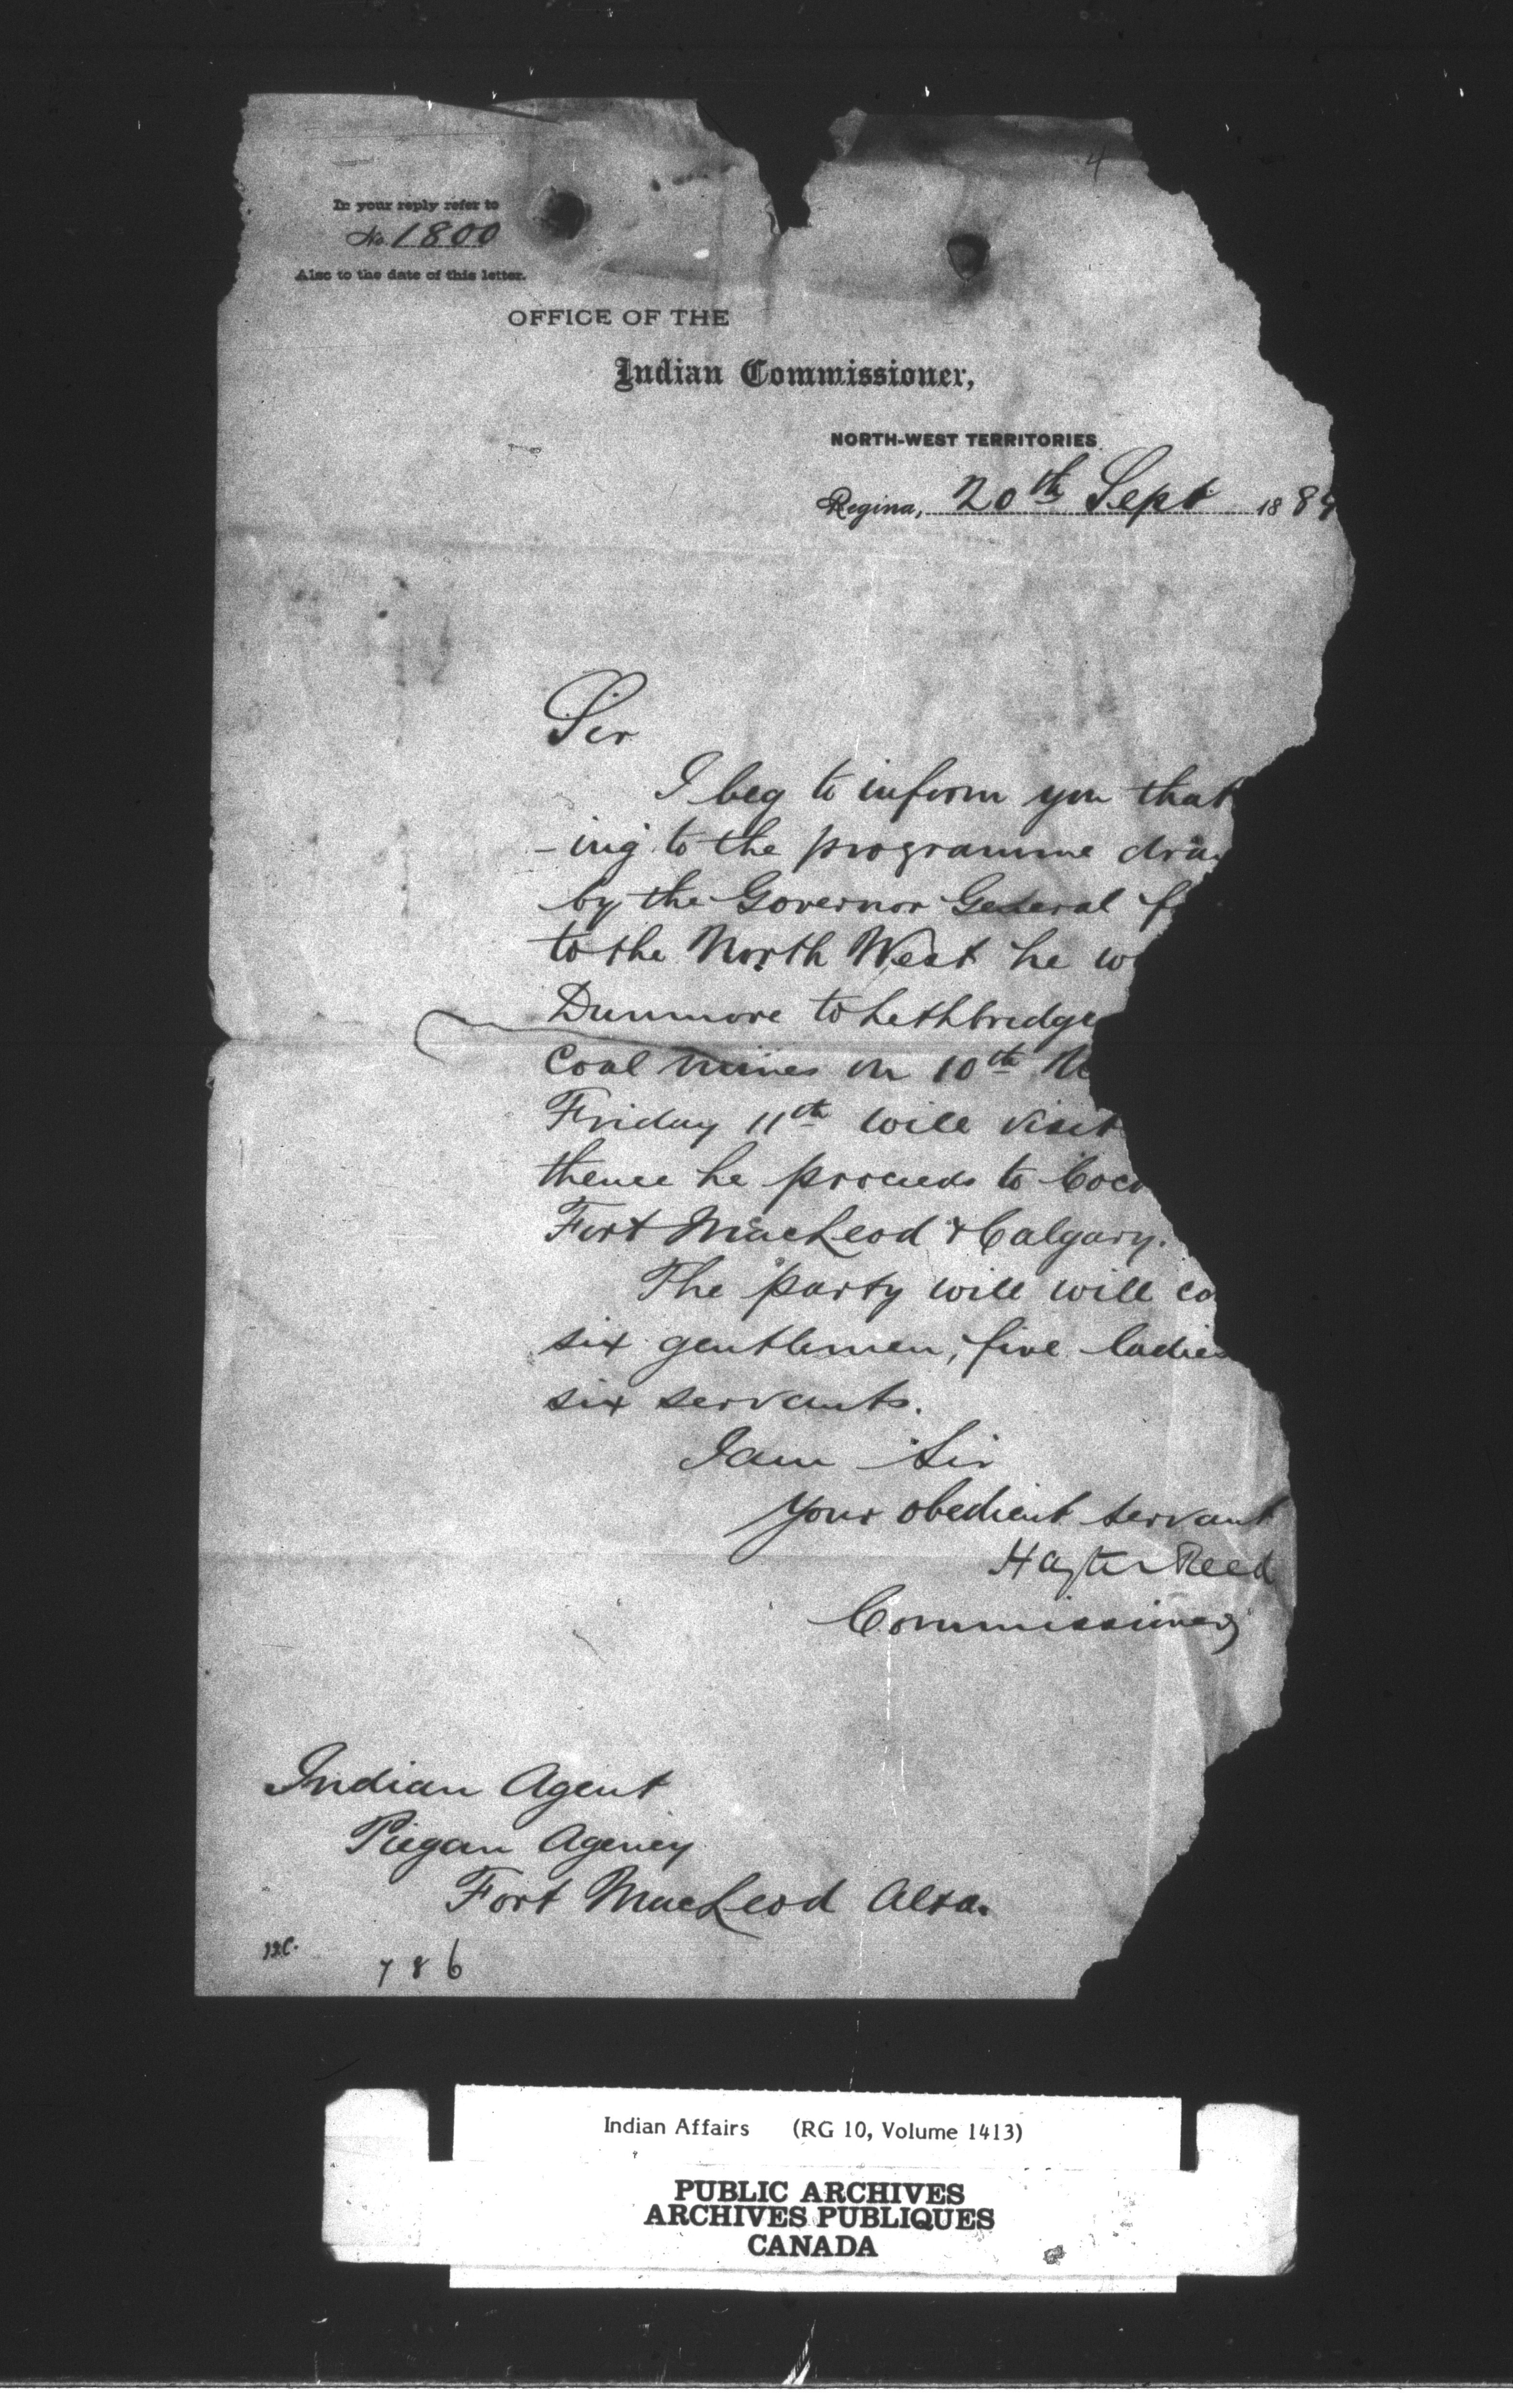 4
In your reply refer to
No. 1800
Also to the date of this letter.
OFFICE OF THE
Indian Commissioner,
NORTH-WEST TERRITORIES
Regina, 20th Sept 1889
Sir
I beg to inform you that
-ing to the programme
by the Governor General
to the North West he
Dunmore to Lethbridge
Coal mines on 10th
Friday 11th will visit
thence he proceeds to
Fort MacLeod & Calgary.
The party will will
six gentlemen, five ladies
six servants.
I am Sir
Your obedient servant
Hayter Reed
Commissioner
Indian Agent
Piegan Agency
Fort MacLeod Alta.
786
Indian Affairs (RG 10, Volume 1413)
PUBLIC ARCHIVES
ARCHIVES PUBLIQUES
CANADA